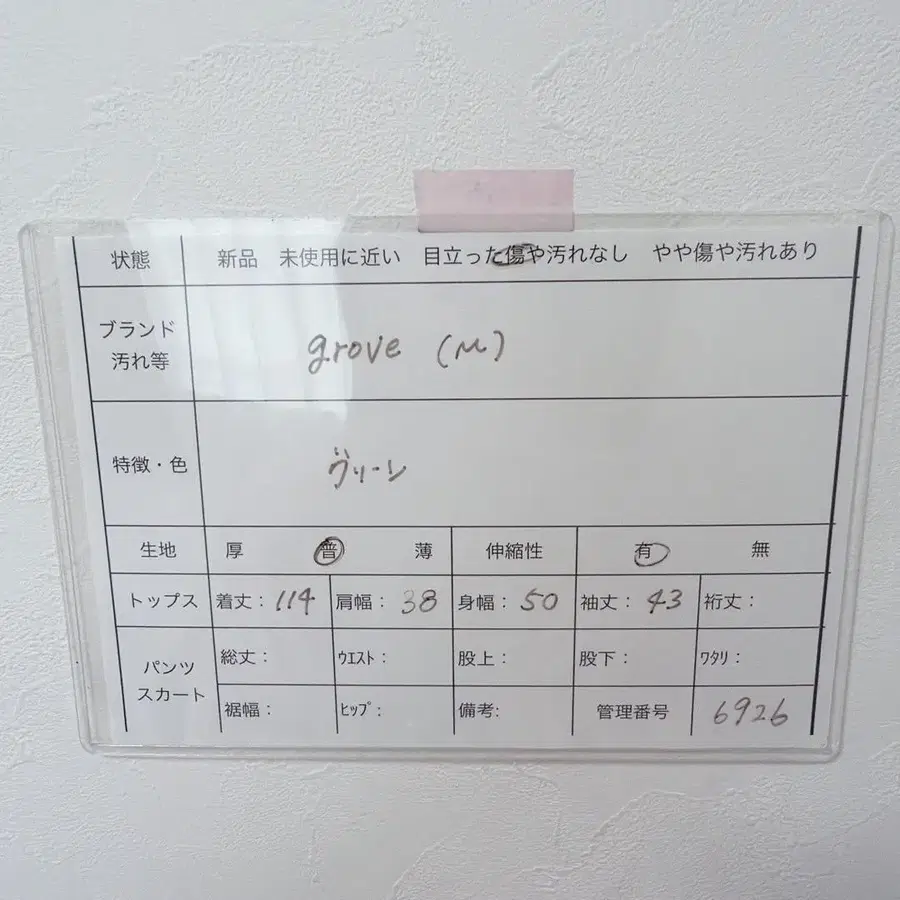 状態 新品 未使用に近い 目立った傷や汚れなし やや傷や汚れあり
ブランド
汚れ等
grove (M)
特徴・色
グリーン
生地 厚 普 薄 伸縮性 有 無
トップス 着丈：114 肩幅：38 身幅：50 袖丈：43 裄丈：
パンツ
スカート
総丈： ウエスト： 股上： 股下： ワタリ：
裾幅： ヒップ： 備考: 管理番号 6926